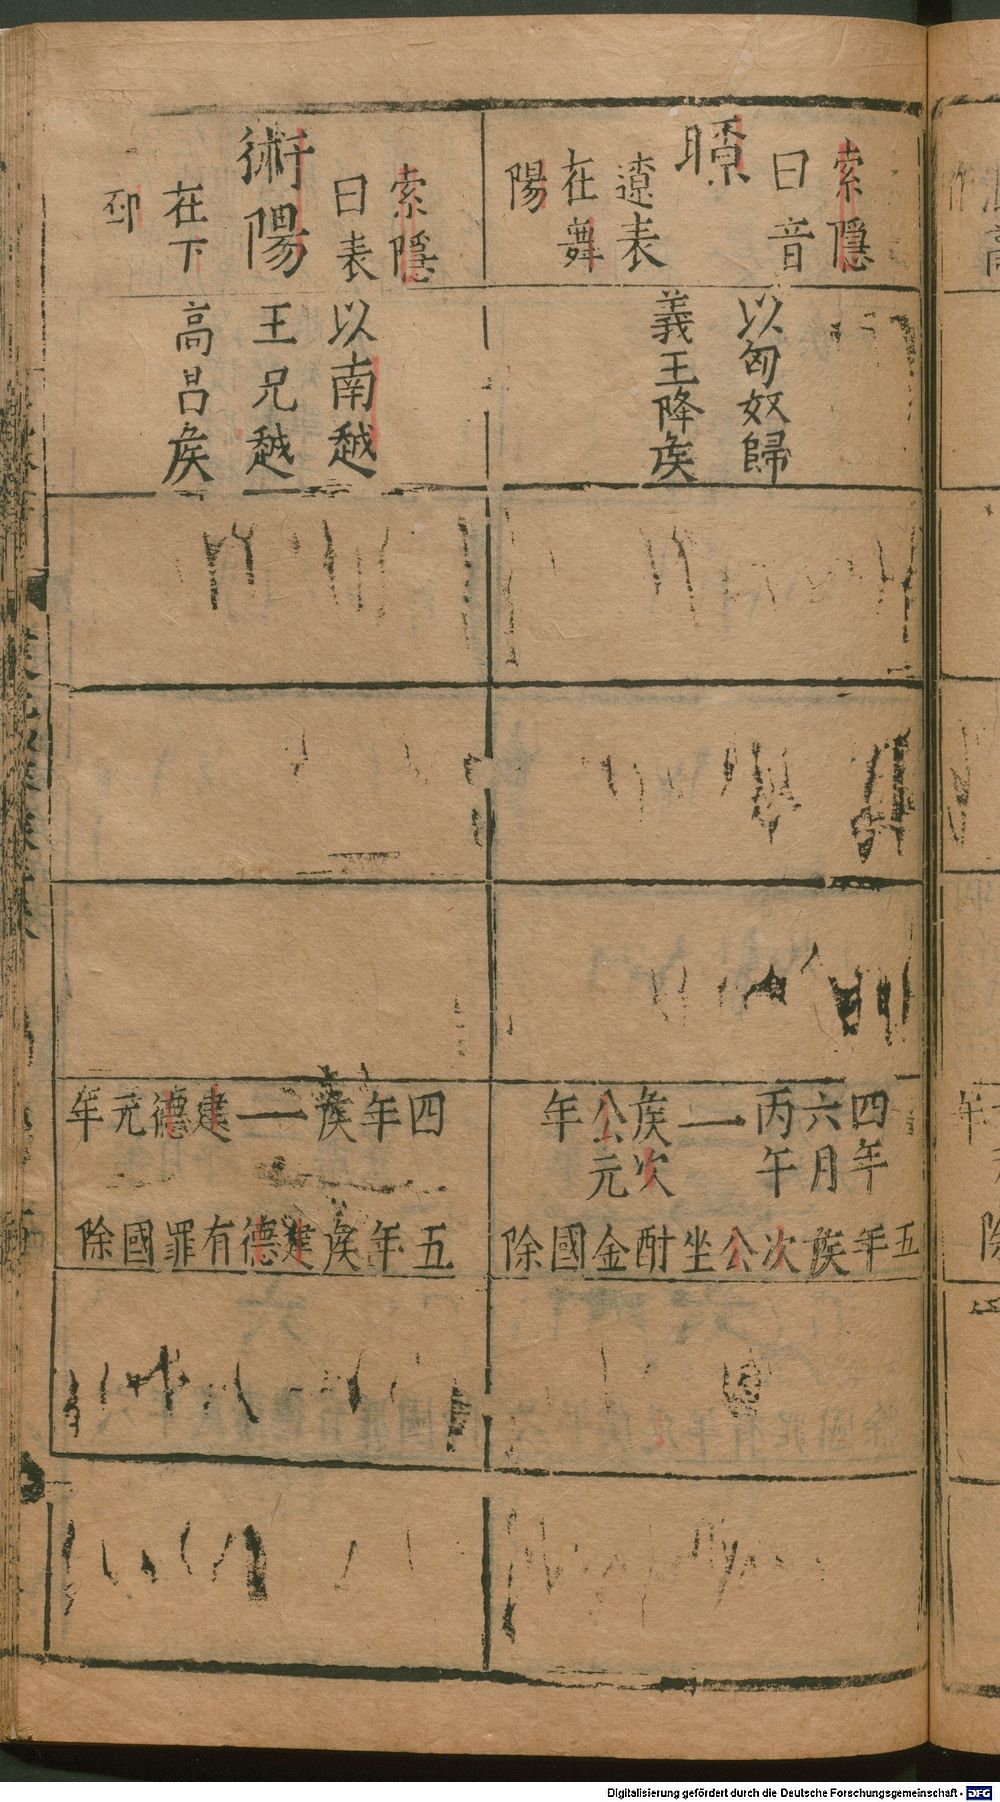 索隱
曰音
瞭
遼表
在舞
陽
以匈奴歸
義王降矦
四年
六月
丙午
一
矦次
公元
年
五年矦次公坐酎金國除
索隱
曰表
術陽
在下
邳
以南越
王兄越
高昌矦
四年矦一建德元年
五年矦建德有罪國除
Digitalisierung gefördert durch die Deutsche Forschungsgemeinschaft - DFG